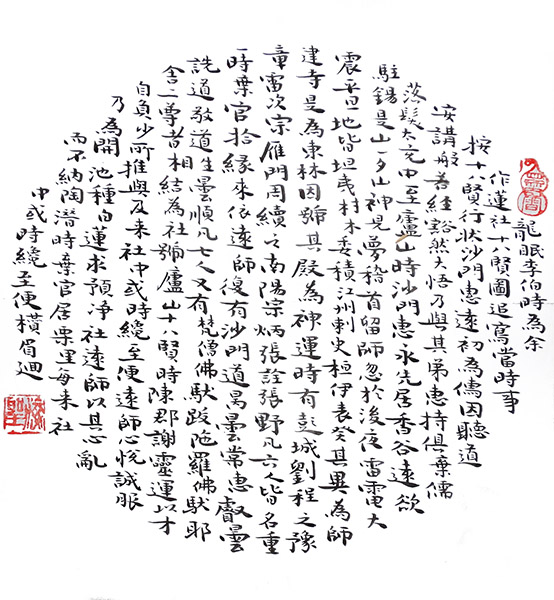 龍眠李伯時為余
作蓮社十八賢圖追寫當時事
按十八賢行狀沙門惠遠初為儒因聽道
安講般若經豁然大悟乃與其弟惠持俱棄儒
落髮太元中至廬山時沙門惠永先居香谷遠欲
駐錫是山一夕山神見夢稽首留師忽於後夜雷電大
震平旦地皆坦夷材木委積江州刺史桓伊表奏其異為師
建寺是為東林因號其殿為神運時有彭城劉程之豫
章雷次宗雁門周續之南陽宗炳張詮張野凡六人皆名重
一時棄官拾緣來依遠師復有沙門道昺曇常惠叡曇
詵道敬道生曇順凡七人又有梵僧佛馱跋陀羅佛馱耶
舍二尊者相結為社號廬山十八賢時陳郡謝靈運以才
自負少所推與及來社中或時纔至便遠師心悅誠服
乃為開池種白蓮求預淨社遠師以其心亂
而不納陶潛時棄官居栗里每來社
中或時纔至便橫眉迴